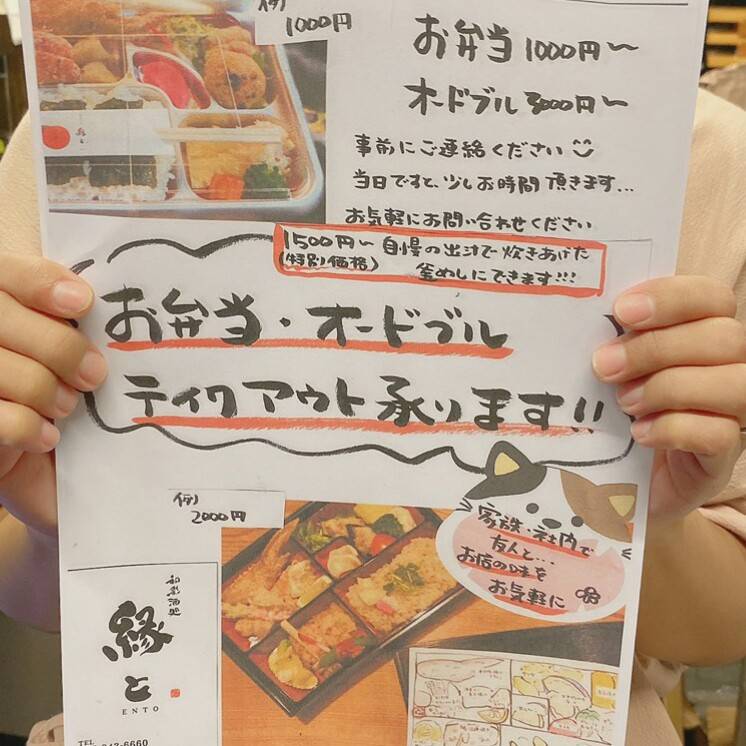 例)
1000円
お弁当 1000円〜
オードブル 3000円〜
事前にご連絡ください
当日ですと、少しお時間頂きます...
お気軽にお問い合わせください
1500円〜 自慢の出汁で炊きあげた
(特別価格) 釜めしにできます!!!
お弁当・オードブル
テイクアウト承ります!!
例)
2000円
家族・社内で
友人と...
お店の味を
お気軽に
和彩酒処
縁と
ENTO
TEL
6660
縁と